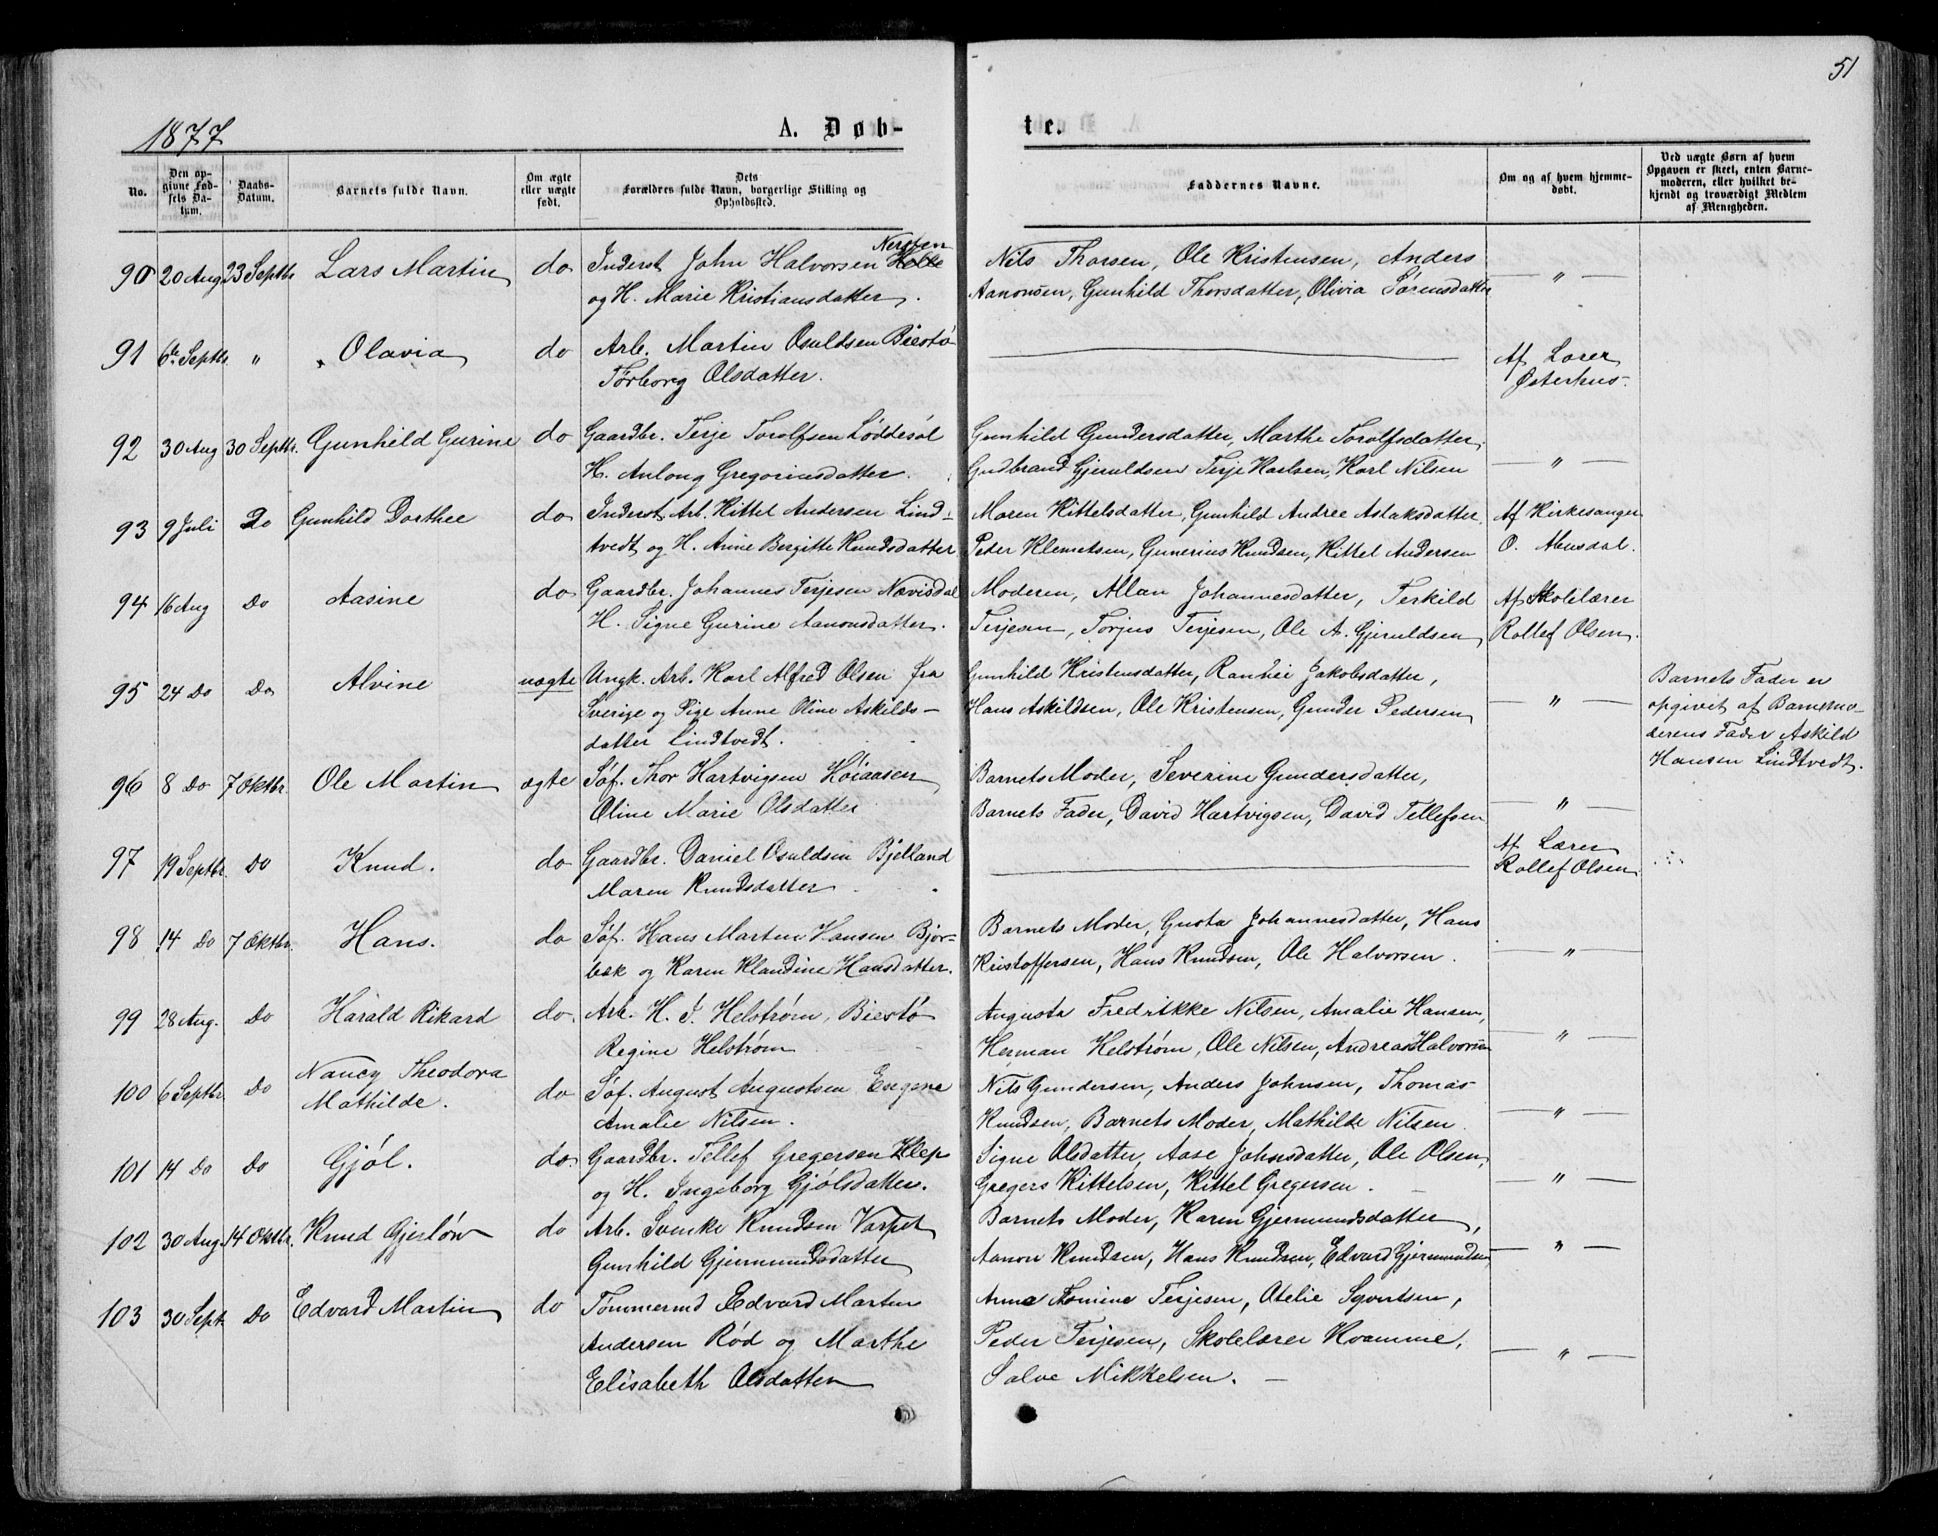 51
1877
A. Døb-
te.
No.
Den opgivne Fødsels Datum.
Daabs-Datum.
Barnets fulde Navn.
Om ægte eller uægte født.
Dets Forældres fulde Navn, borgerlige Stilling og Opholdssted.
Faddernes Navne.
Om og af hvem hjemmedøbt.
Ved uægte Børn af hvem Opgaven er skeet, enten Barnemoderen, eller hvilket bekjendt og troværdigt Medlem af Menigheden.
90 20 Aug 23 Septbr Lars Martin do Inderst John Halvorsen Nersten
og H. Marie Kristiansdatter.
Nils Thorsen, Ole Kristensen, Anders
Aanonsen, Gunhild Thorsdatter, Olivia Sørensdatter — " —
91 6te Septbr. " Olavia do Arb. Martin Osuldsen Biestø
Torborg Olsdatter.
Af Lærer
Østerhus.
92 30 Aug 30 Septbr. Gunhild Gurine do Gaardbr. Terje Torolfsen Løddesøl
H. Anlong Gregoriusdatter.
Gunhild Gundersdatter, Marthe Torolfsdatter,
Gudbrand Gjeruldsen Terje Karlsen, Karl Nilsen — " —
93 9 Juli Do Gunhild Dorthee do Inderst Arb. Kittel Andersen Lind-
tvedt og H. Anne Bergitte Knudsdatter
Maren Kittelsdatter, Gunhild Andree Aslaksdatter
Peder Klemetsen, Gunerius Knudsen, Kittel Andersen
Af Kirkesanger
O. Mensdal.
94 16 Aug Do Aasine do Gaardbr. Johannes Terjesen Nævisdal
H. Signe Gurine Aanonsdatter.
Moderen, Allan Johannesdatter, Terkild
Terjesen, Torjus Terjesen, Ole A. Gjeruldsen
Af Skolelærer
Rollef Olsen.
95 24 Do Do Alvine uægte Ungk. Arb. Karl Alfred Olsen fra
Sverige og Pige Anne Oline Askilds-
datter Lindtvedt.
Gunhild Kristensdatter, Ranhei Jakobsdatter,
Hans Askildsen, Ole Kristensen, Gunder Pedersen — " —
Barnets Fader er
opgivet af Barnemo-
derens Fader Askild
Hansen Lindtvedt.
96 8 Do 7 Oktbr. Ole Martin ægte Søf. Thor Hartvigsen Høiaasen
Oline Marie Olsdatter
Barnets Moder, Severine Gundersdatter,
Barnets Fader, David Hartvigsen, David Tellefsen — " —
97 19 Septbr. Do Knud. do Gaardbr. Daniel Osuldsen Bjelland
Maren Knudsdatter
Af Lærer
Rollef Olsen
98 14 Do 7 Oktbr. Hans. do Søf. Hans Martin Hansen Bjor-
bæk og Karen Klaudine Hansdatter.
Barnets Moder, Gusta Johannesdatter, Hans
Kristoffersen, Hans Knudsen, Ole Halvorsen. — " —
99 28 Aug. Do Harald Rikard do Arb. H. J. Helstrøm, Biestø
Regine Helstrøm
Augusta Fredrikke Nilsen, Amalie Hansen,
Herman Helstrøm, Ole Nilsen, Andreas Halvorsen — " —
100 6 Septbr. Do Nancy Theodora
Mathilde. do Søf. August Augustsen Engene
Amalie Nilsen.
Nils Gundersen, Anders Johnsen, Thomas
Knudsen, Barnets Moder, Mathilde Nilsen. — " —
101 14 Do Do Gjøl. do. Gaardbr. Tellef Gregersen Klep
og H. Ingeborg Gjølsdatter.
Signe Olsdatter, Aase Johnsdatter, Ole Olsen,
Gregers Kittelsen, Kittel Gregersen. — " —
102 30 Aug. 14 Oktbr. Knud Gjerløv do Arb. Svenke Knudsen Varpet
Gunhild Gjermundsdatter
Barnets Moder, Karen Gjermundsdatter,
Aanon Knudsen, Hans Knudsen, Edvard Gjermundsen — " —
103 30 Sept. Do Edvard Martin do Tømmermd Edvard Marten
Andersen Rød og Marthe
Elisabeth Olsdatter
Anne Tomine Terjesen, Otelie Syvertsen,
Peder Terjesen, Skolelærer Kvamme,
Salve Mikkelsen. — " —